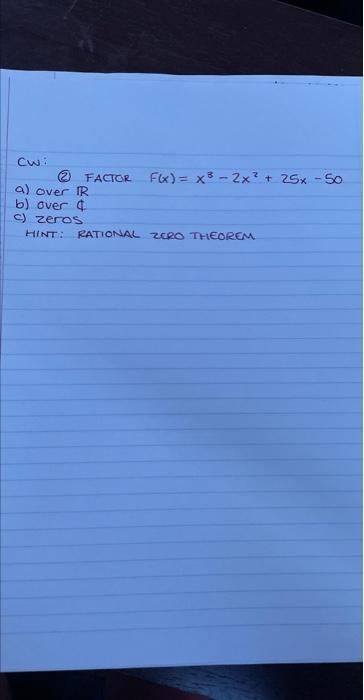 CW:
② FACTOR F(x) = x³ - 2x² + 25x - 50
a) over ℝ
b) over ℂ
c) zeros
HINT: RATIONAL ZERO THEOREM